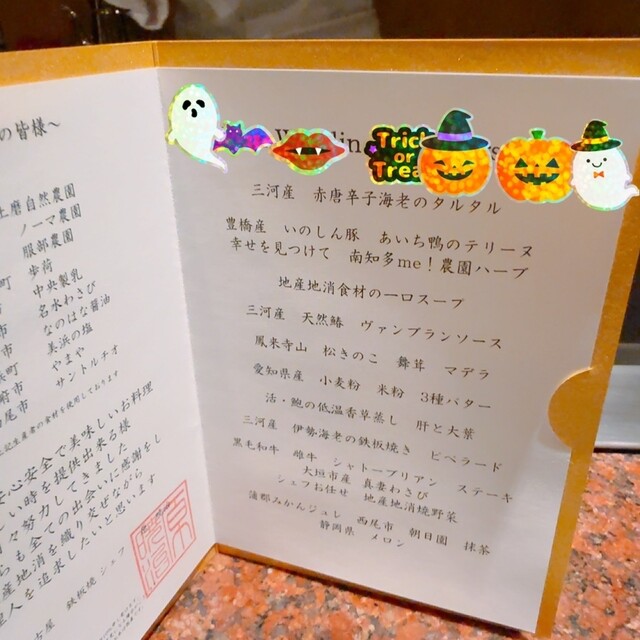 の皆様~
土磨自然農園
ノーマ農園
服部農園
町 歩荷
中央製乳
市 名水わさび
市 なのはな醤油
美浜の塩
やまや
市 サントルチオ
記生産者の食材を使用しております
安心安全で美味しいお料理
しい時を提供出来る様
々努力してきました
らも全ての出会いに感謝をし
産地消を織り交ぜながら
理人を追求したいと思います
古屋 鉄板焼 シェフ
Trick
or
Trea
三河産 赤唐辛子海老のタルタル
豊橋産 いのしん豚 あいち鴨のテリーヌ
幸せを見つけて 南知多me!農園ハーブ
地産地消食材の一口スープ
三河産 天然鰆 ヴァンブランソース
鳳来寺山 松きのこ 舞茸 マデラ
愛知県産 小麦粉 米粉 3種バター
活・鮑の低温香草蒸し 肝と大葉
三河産 伊勢海老の鉄板焼き ビベラード
黒毛和牛 雌牛 シャトーブリアン ステーキ
大垣市産 真妻わさび
シェフお任せ 地産地消焼野菜
蒲郡みかんジュレ 西尾市 朝日園 抹茶
静岡県 メロン